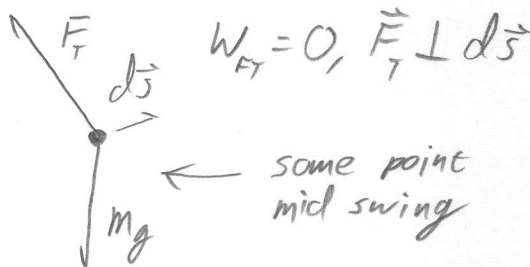 F⃗_T
W_FT = 0, F⃗_T ⊥ ds⃗
ds⃗
some point
mid swing
mg